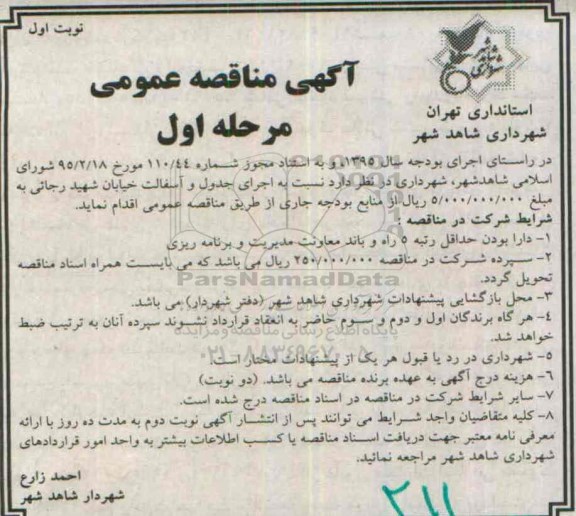 نوبت اول
شهرداری شاهد شهر
آگهی مناقصه عمومی
مرحله اول
استانداری تهران
شهرداری شاهد شهر
در راستای اجرای بودجه سال ۱۳۹۵ و به استناد مجوز شماره ۱۱۰/۴۴ مورخ ۹۵/۲/۱۸ شورای
اسلامی شاهدشهر، شهرداری در نظر دارد نسبت به اجرای جدول و آسفالت خیابان شهید رجائی به
مبلغ ۵/۰۰۰/۰۰۰/۰۰۰ ریال از منابع بودجه جاری از طریق مناقصه عمومی اقدام نماید.
شرایط شرکت در مناقصه :
۱- دارا بودن حداقل رتبه ۵ راه و باند معاونت مدیریت و برنامه ریزی
۲- سپرده شرکت در مناقصه ۲۵۰/۰۰۰/۰۰۰ ریال می باشد که می بایست همراه اسناد مناقصه
تحویل گردد.
ParsNamadData
۳- محل بازگشایی پیشنهادات شهرداری شاهد شهر (دفتر شهردار) می باشد.
۴- هر گاه برندگان اول و دوم و سوم حاضر به انعقاد قرارداد نشوند سپرده آنان به ترتیب ضبط
خواهد شد.
پایگاه اطلاع رسانی مناقصه و مزایده
۵- شهرداری در رد یا قبول هر یک از پیشنهادات مختار است.
۶- هزینه درج آگهی به عهده برنده مناقصه می باشد. (دو نوبت)
۷- سایر شرایط شرکت در مناقصه در اسناد مناقصه درج شده است.
۸- کلیه متقاضیان واجد شرایط می توانند پس از انتشار آگهی نوبت دوم به مدت ده روز با ارائه
معرفی نامه معتبر جهت دریافت اسناد مناقصه یا کسب اطلاعات بیشتر به واحد امور قراردادهای
شهرداری شاهد شهر مراجعه نمائید.
احمد زارع
شهردار شاهد شهر
۲۱۱